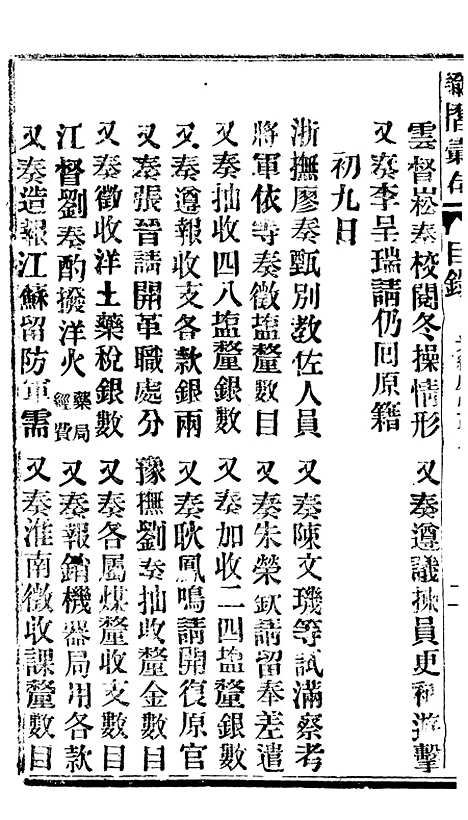 諭摺彙存 目錄
雲督崧奏校閱冬操情形 又奏遵議揀員更補遊擊
又奏李呈瑞請仍回原籍
初九日
浙撫廖奏甄別教佐人員 又奏陳文璣等試滿察考
將軍依等奏徵塩釐數目 又奏朱榮欽請留奉差遣
又奏抽收四八塩釐銀數 又奏加收二四塩釐銀數
又奏遵報收支各款銀兩 又奏耿鳳鳴請開復原官
又奏張晉請開革職處分 豫撫劉奏抽收釐金數目
又奏徵收洋土藥稅銀數 又奏各屬煤釐收支數目
江督劉奏酌撥洋火藥局經費 又奏報銷機器局用各款
又奏造報江蘇留防軍需 又奏淮南徵收課釐數目